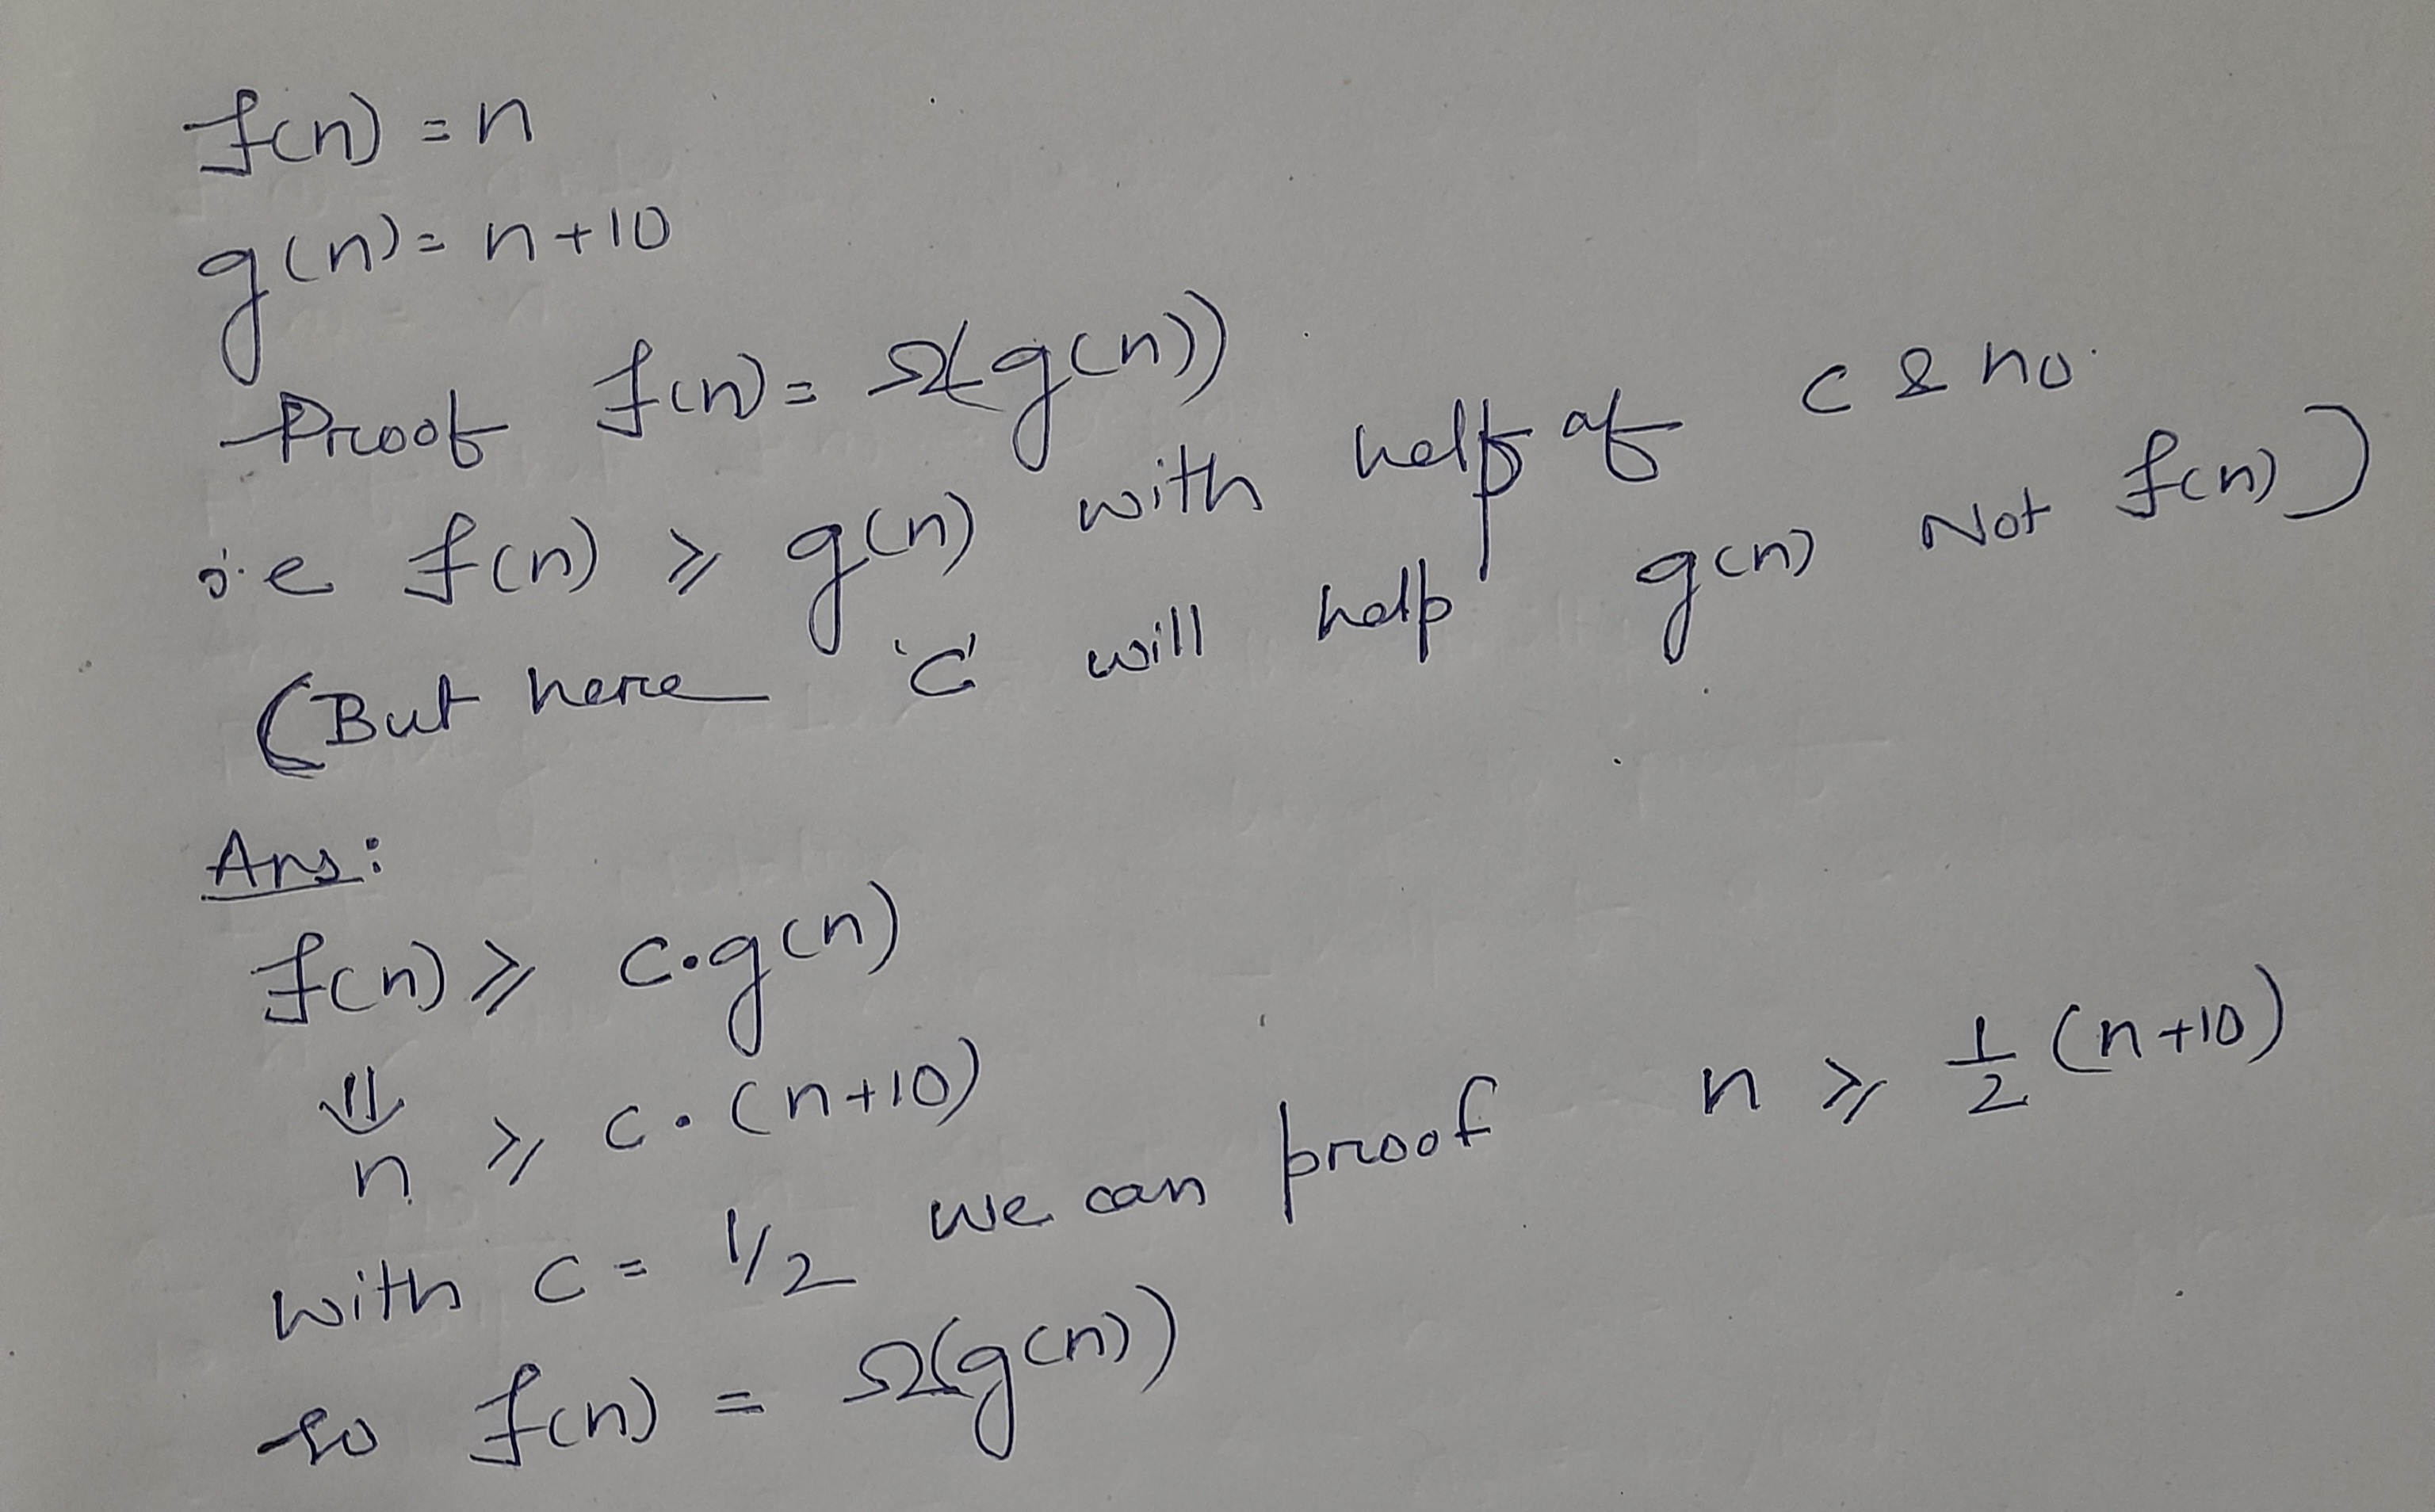 f(n) = n
g(n) = n+10
Proof f(n) = Ω(g(n))
i.e f(n) ≥ g(n) with help of c & no.
(But here 'C' will help g(n) Not f(n))
Ans:
f(n) ≥ c.g(n)
⇓
n ≥ c.(n+10)
with c = 1/2 we can proof n ≥ 1/2 (n+10)
so f(n) = Ω(g(n))